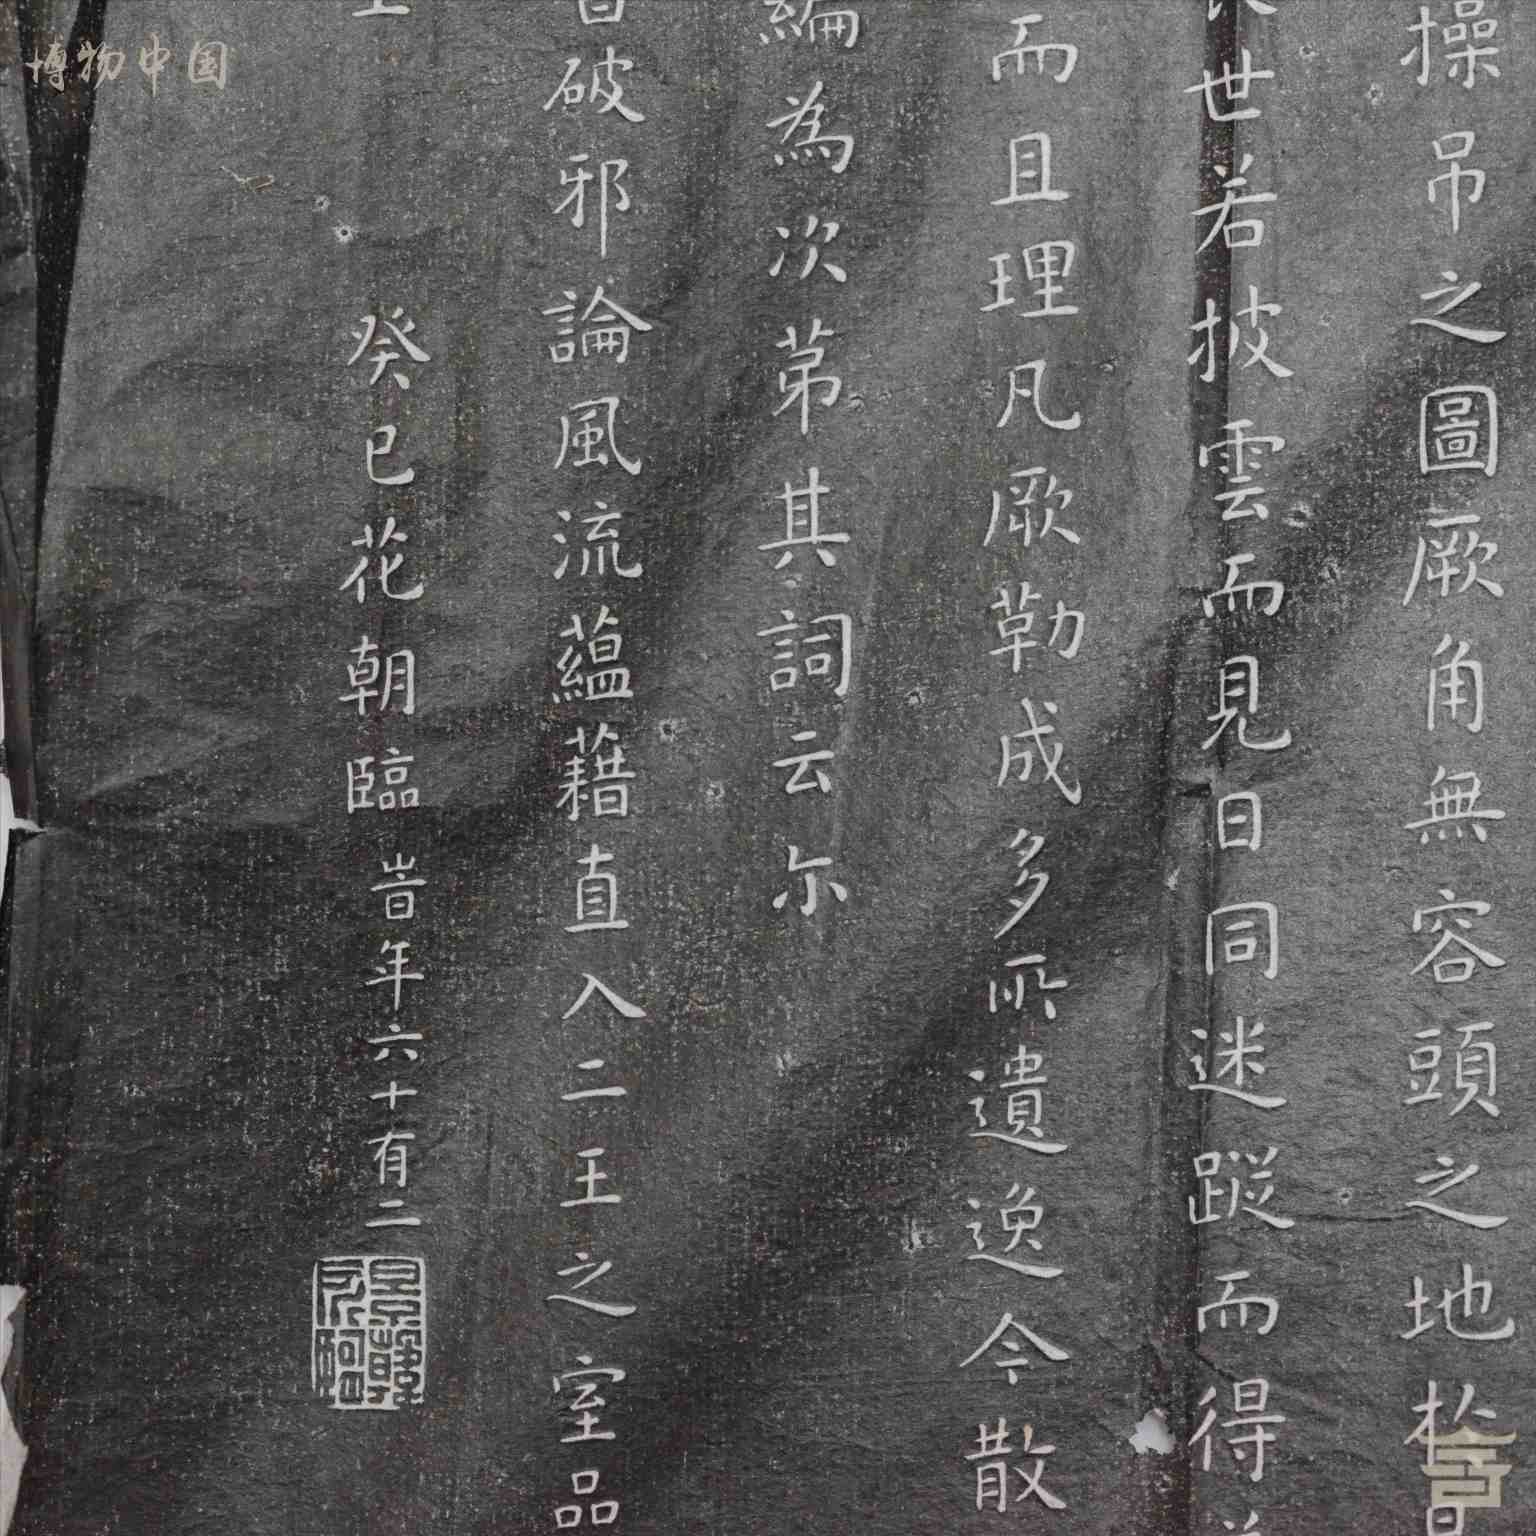 操吊之圖厥角無容頭之地於
世若披雲而見日同迷蹤而得
而且理凡厥勒成多所遺逸今散
編為次苐其詞云尒
破邪論風流蘊藉直入二王之室品
癸巳花朝臨 旹年六十有二
博物中国